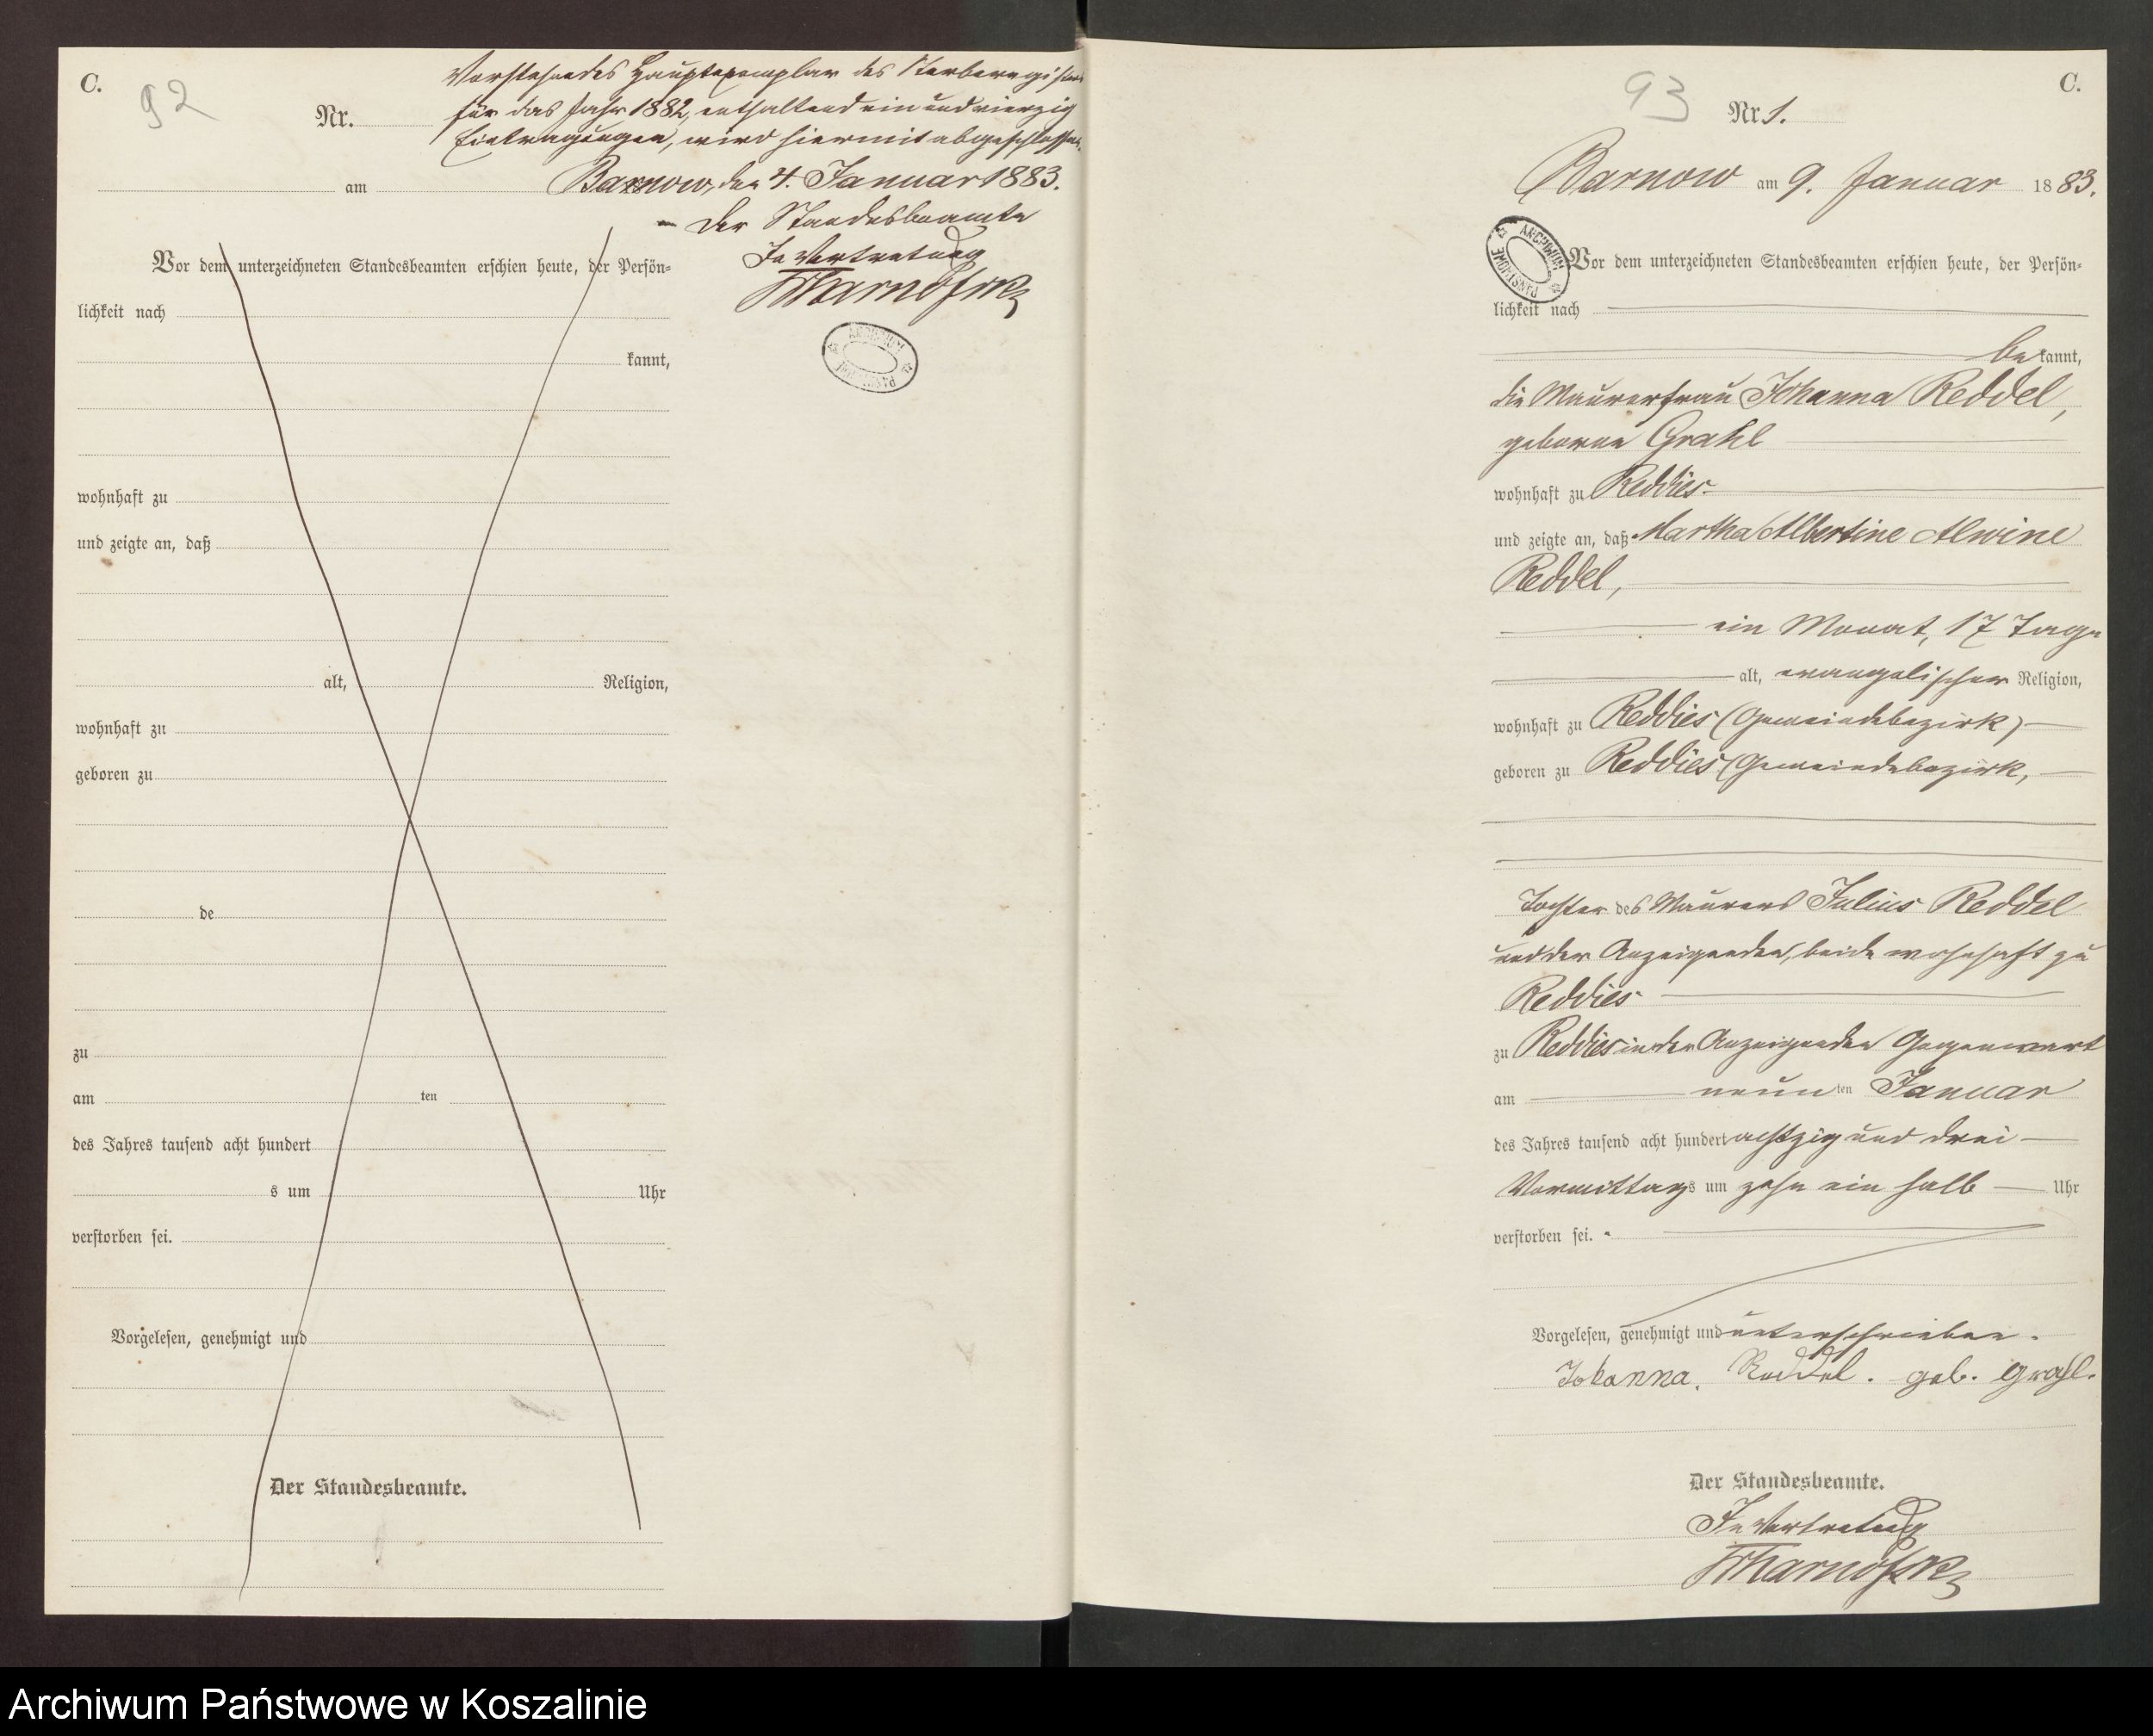 C.
92
Vorstehendes Hauptexemplar des Sterberegisters
Nr.
für das Jahr 1882, enthaltend ein und vierzig
Eintragungen, wird hiermit abgeschlossen.
am
Barnow, den 4. Januar 1883.
Der Standesbeamte
In Vertretung
Vor dem unterzeichneten Standesbeamten erschien heute, der Persön=
lichkeit nach
kannt,
wohnhaft zu
und zeigte an, daß
alt, Religion,
wohnhaft zu
geboren zu
de
zu
am ten
des Jahres tausend acht hundert
s um Uhr
verstorben sei.
Vorgelesen, genehmigt und
Der Standesbeamte.
ARCHIWUM PAŃSTWOWE
C.
93
Nr. 1.
Barnow am 9. Januar 1883.
ARCHIWUM PAŃSTWOWE
Vor dem unterzeichneten Standesbeamten erschien heute, der Persön=
lichkeit nach
bekannt,
die Maurerfrau Johanna Reddel,
geborne Grahl
wohnhaft zu Reddies
und zeigte an, daß Martha Albertine Alwine
Reddel,
ein Monat, 17 Tage
alt, evangelischer Religion,
wohnhaft zu Reddies (Gemeindebezirk)
geboren zu Reddies (Gemeindebezirk,
Tochter des Maurers Julius Reddel
und der Anzeigenden, beide wohnhaft zu
Reddies
zu Reddies in der Anzeigenden Gegenwart
am neunten Januar
des Jahres tausend acht hundert achtzig und drei
Vormittags um zehn ein halb Uhr
verstorben sei.
Vorgelesen, genehmigt und unterschrieben.
Johanna. Reddel. geb. Grahl.
Der Standesbeamte.
In Vertretung
Archiwum Państwowe w Koszalinie